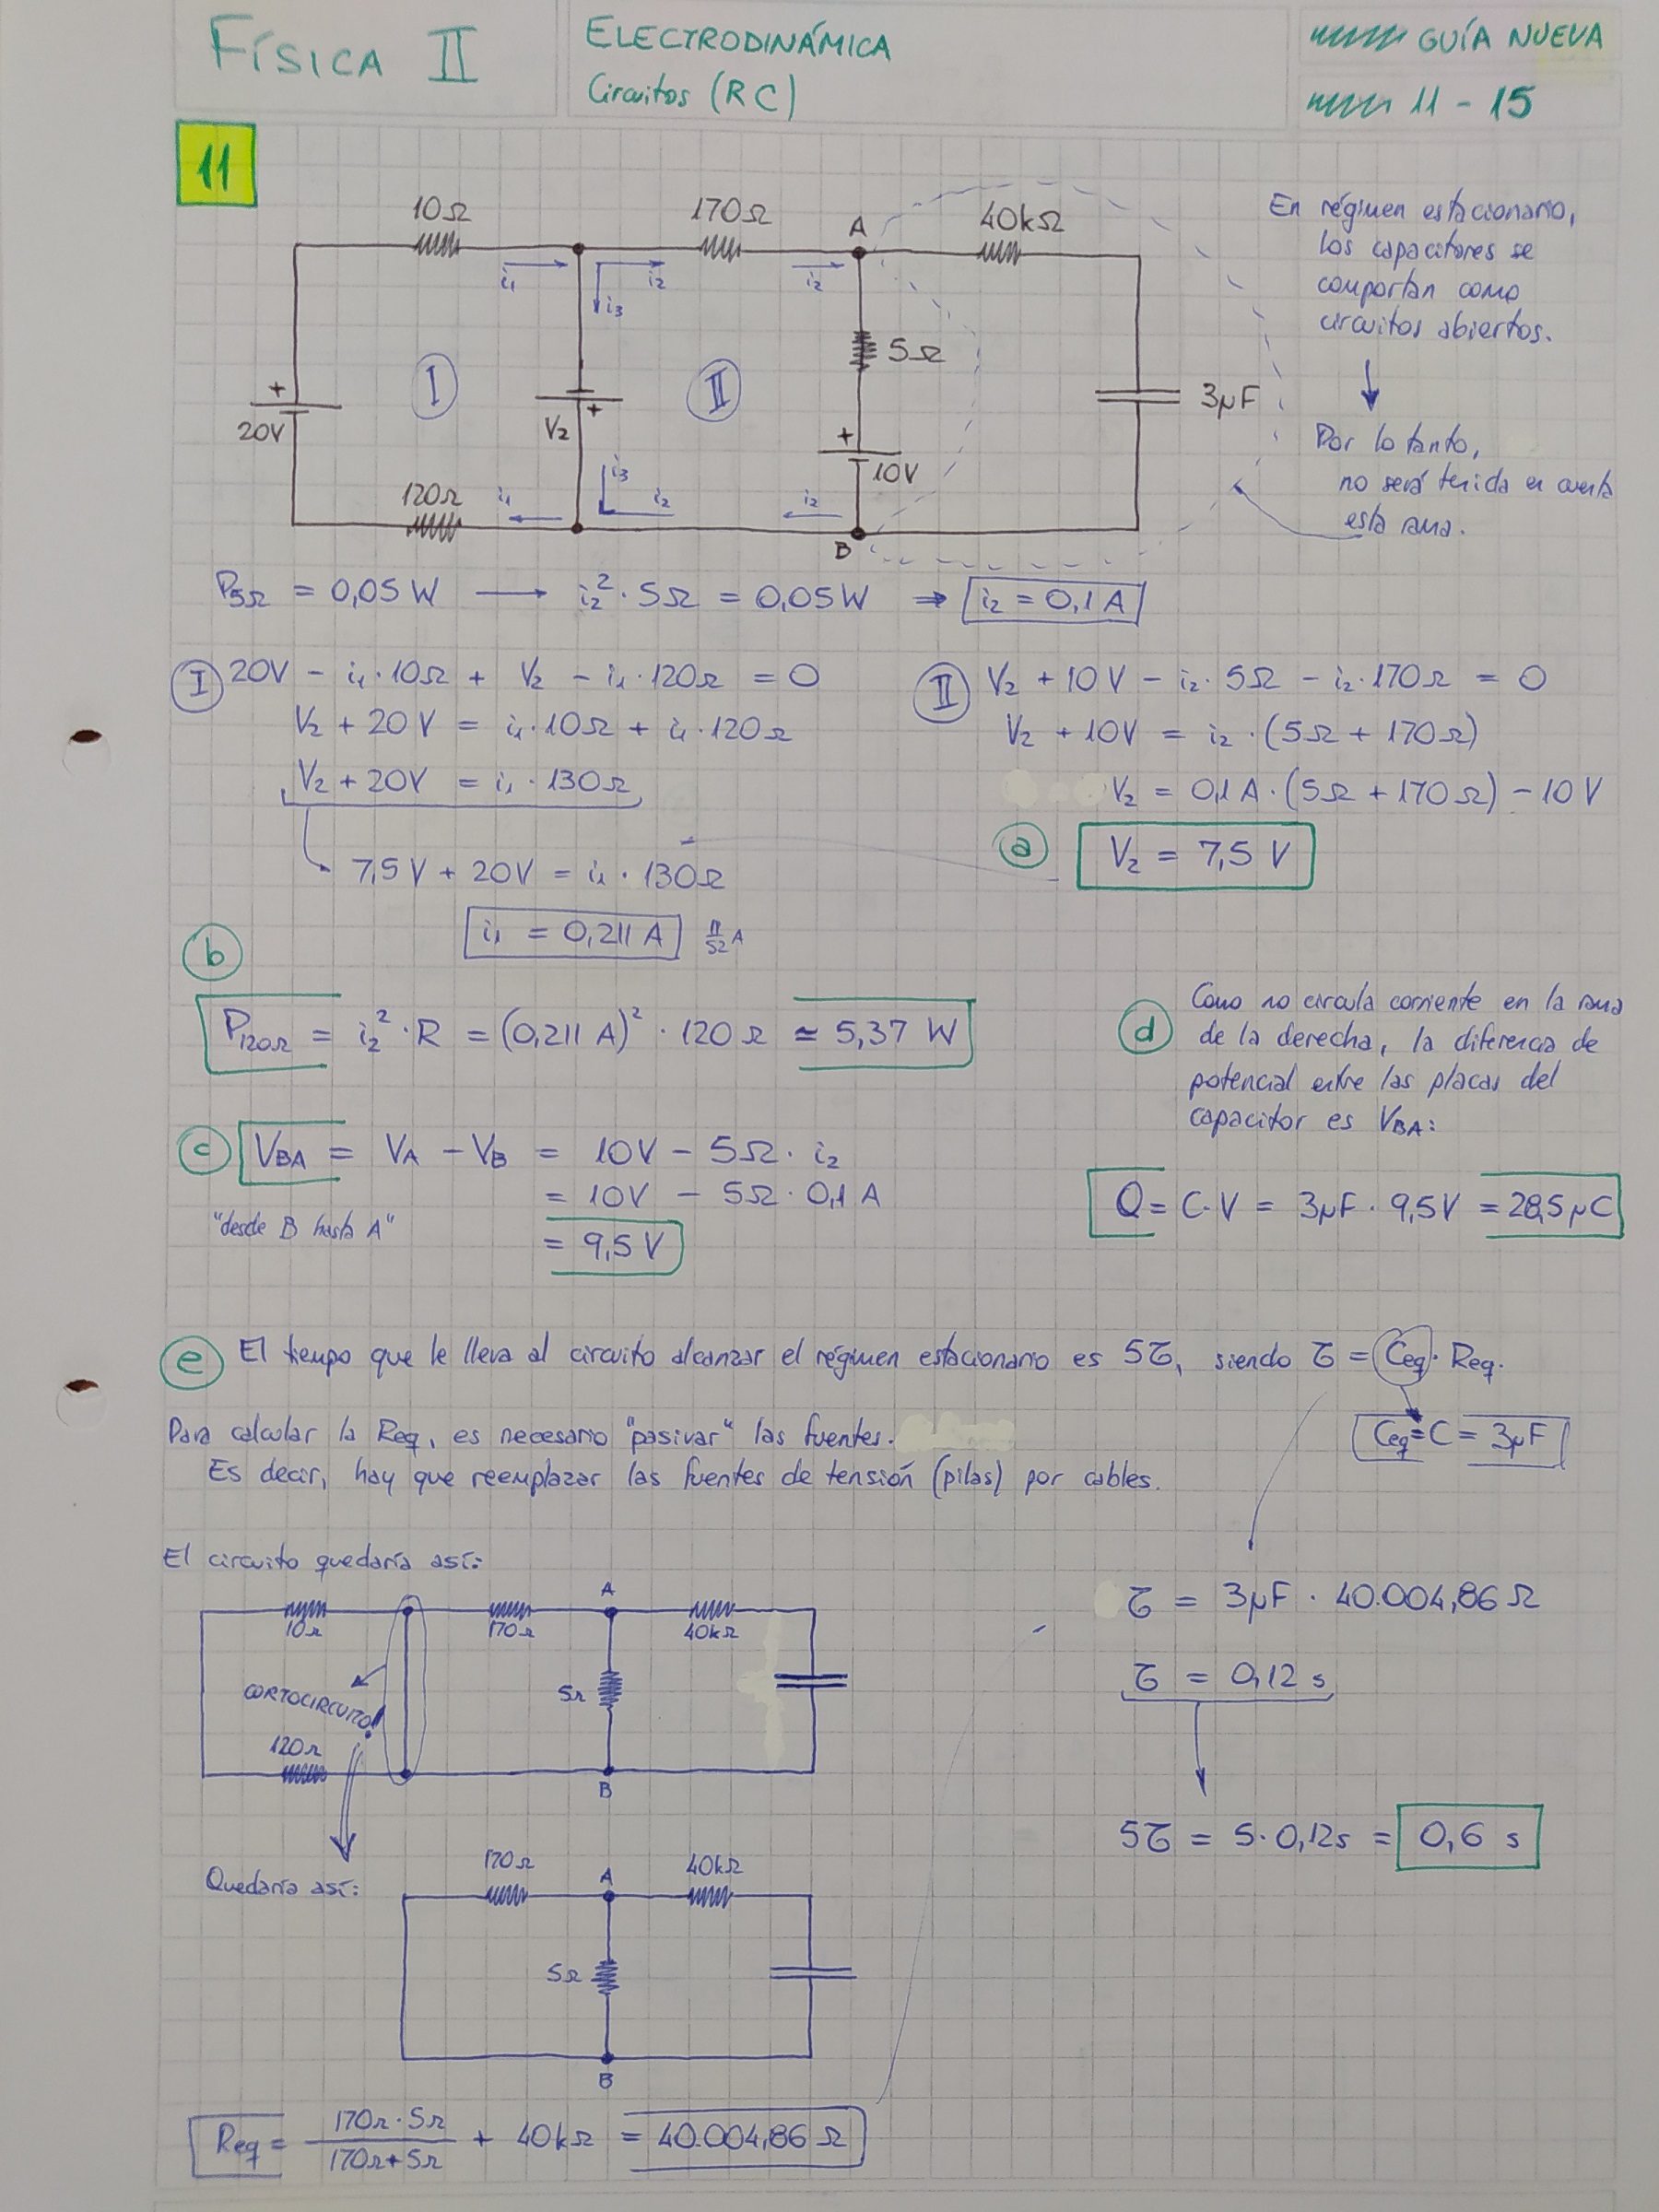 FÍSICA II
ELECTRODINÁMICA
Circuitos (RC)
GUÍA NUEVA
11 - 15
11
10Ω
170Ω
A
40kΩ
i₁
i₂
i₂
i₃
5Ω
I
II
+
20V
V₂
+
+
10V
3μF
120Ω
i₁
i₃
i₂
i₂
B
En régimen estacionario,
los capacitores se
comportan como
circuitos abiertos.
Por lo tanto,
no será tenida en cuenta
esta rama.
P5Ω = 0,05 W → i₂² · 5Ω = 0,05W ⇒ i₂ = 0,1 A
I 20V - i₁ · 10Ω + V₂ - i₁ · 120Ω = 0
V₂ + 20V = i₁ · 10Ω + i₁ · 120Ω
V₂ + 20V = i₁ · 130Ω
7,5V + 20V = i₁ · 130Ω
i₁ = 0,211 A 11/52 A
II V₂ + 10V - i₂ · 5Ω - i₂ · 170Ω = 0
V₂ + 10V = i₂ · (5Ω + 170Ω)
V₂ = 0,1 A · (5Ω + 170Ω) - 10V
a V₂ = 7,5 V
b
P120Ω = i₂² · R = (0,211 A)² · 120Ω ≃ 5,37 W
c VBA = VA - VB = 10V - 5Ω · i₂
= 10V - 5Ω · 0,1 A
"desde B hasta A"
= 9,5 V
d Como no circula corriente en la rama
de la derecha, la diferencia de
potencial entre las placas del
capacitor es VBA:
Q = C · V = 3μF · 9,5V = 28,5 μC
e El tiempo que le lleva al circuito alcanzar el régimen estacionario es 5τ, siendo τ = Ceq · Req.
Ceq = C = 3μF
Para calcular la Req, es necesario "pasivar" las fuentes.
Es decir, hay que reemplazar las fuentes de tensión (pilas) por cables.
El circuito quedaría así:
10Ω
170Ω
A
40kΩ
5Ω
CORTOCIRCUITO!
120Ω
B
τ = 3μF · 40.004,86 Ω
τ = 0,12 s
5τ = 5 · 0,12s = 0,6 s
Quedaría así:
170Ω
A
40kΩ
5Ω
B
Req = 170Ω · 5Ω / 170Ω + 5Ω + 40kΩ = 40.004,86 Ω